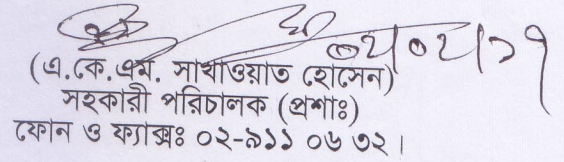 ০২/০২/১৭
(এ.কে.এম. সাখাওয়াত হোসেন)
সহকারী পরিচালক (প্রশাঃ)
ফোন ও ফ্যাক্সঃ ০২-৯১১ ০৬ ৩২।